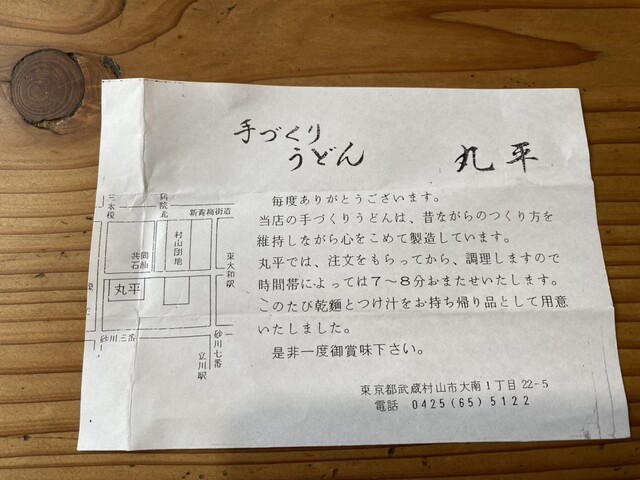 手づくり
うどん
丸平
毎度ありがとうございます。
当店の手づくりうどんは、昔ながらのつくり方を
維持しながら心をこめて製造しています。
丸平では、注文をもらってから、調理しますので
時間帯によっては7〜8分おまたせいたします。
このたび乾麺とつけ汁をお持ち帰り品として用意
いたしました。
是非一度御賞味下さい。
東京都武蔵村山市大南1丁目22-5
電話 0425(65)5122
三本榎
病院北
新青梅街道
村山団地
共同
石油
東大和駅
丸平
砂川三番
砂川七番
立川駅